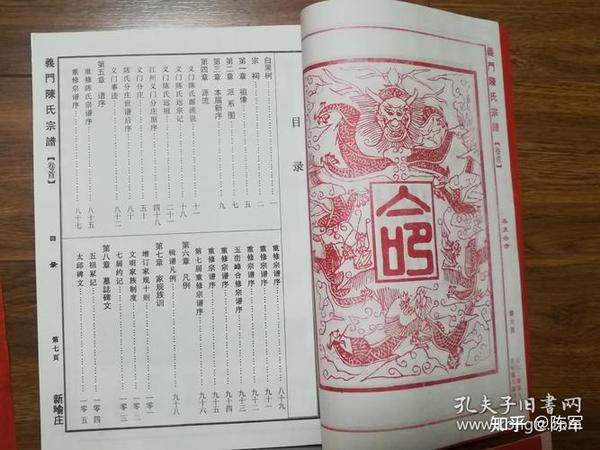 義門陳氏宗譜【卷首】
命
目录
白果树……一
宗祠……二
第一章 祖像……五
第二章 派系图……七
第三章 本届新序……九
第四章 源流
义门陈氏源流说……十一
义门陈氏远宗记……十八
义门陈氏远祖……二十一
江州义门分庄原序……四十八
义门分庄……五十
陈氏分庄世谱后序
义门事迹……八十二
第五章 谱序
重修陈氏宗谱序……八十五
重修宗谱序……八十七
重修宗谱序……八十九
重修宗谱序……九十一
重修宗谱序……九十二
合修宗谱序……九十三
重修宗谱序……九十四
第七届重修宗谱序……九十六
第六章 凡例
辑谱凡例……九十八
第七章 家规族训
增订家规十则……一〇一
文明家族制度……一〇二
七届约记……一〇三
第八章 墓誌碑文
五祖冢记……一〇四
太邱碑文……一〇五
義門陳氏宗譜【卷首】
目录
第七页
新喻庄
孔夫子旧书网
知乎 @陈军